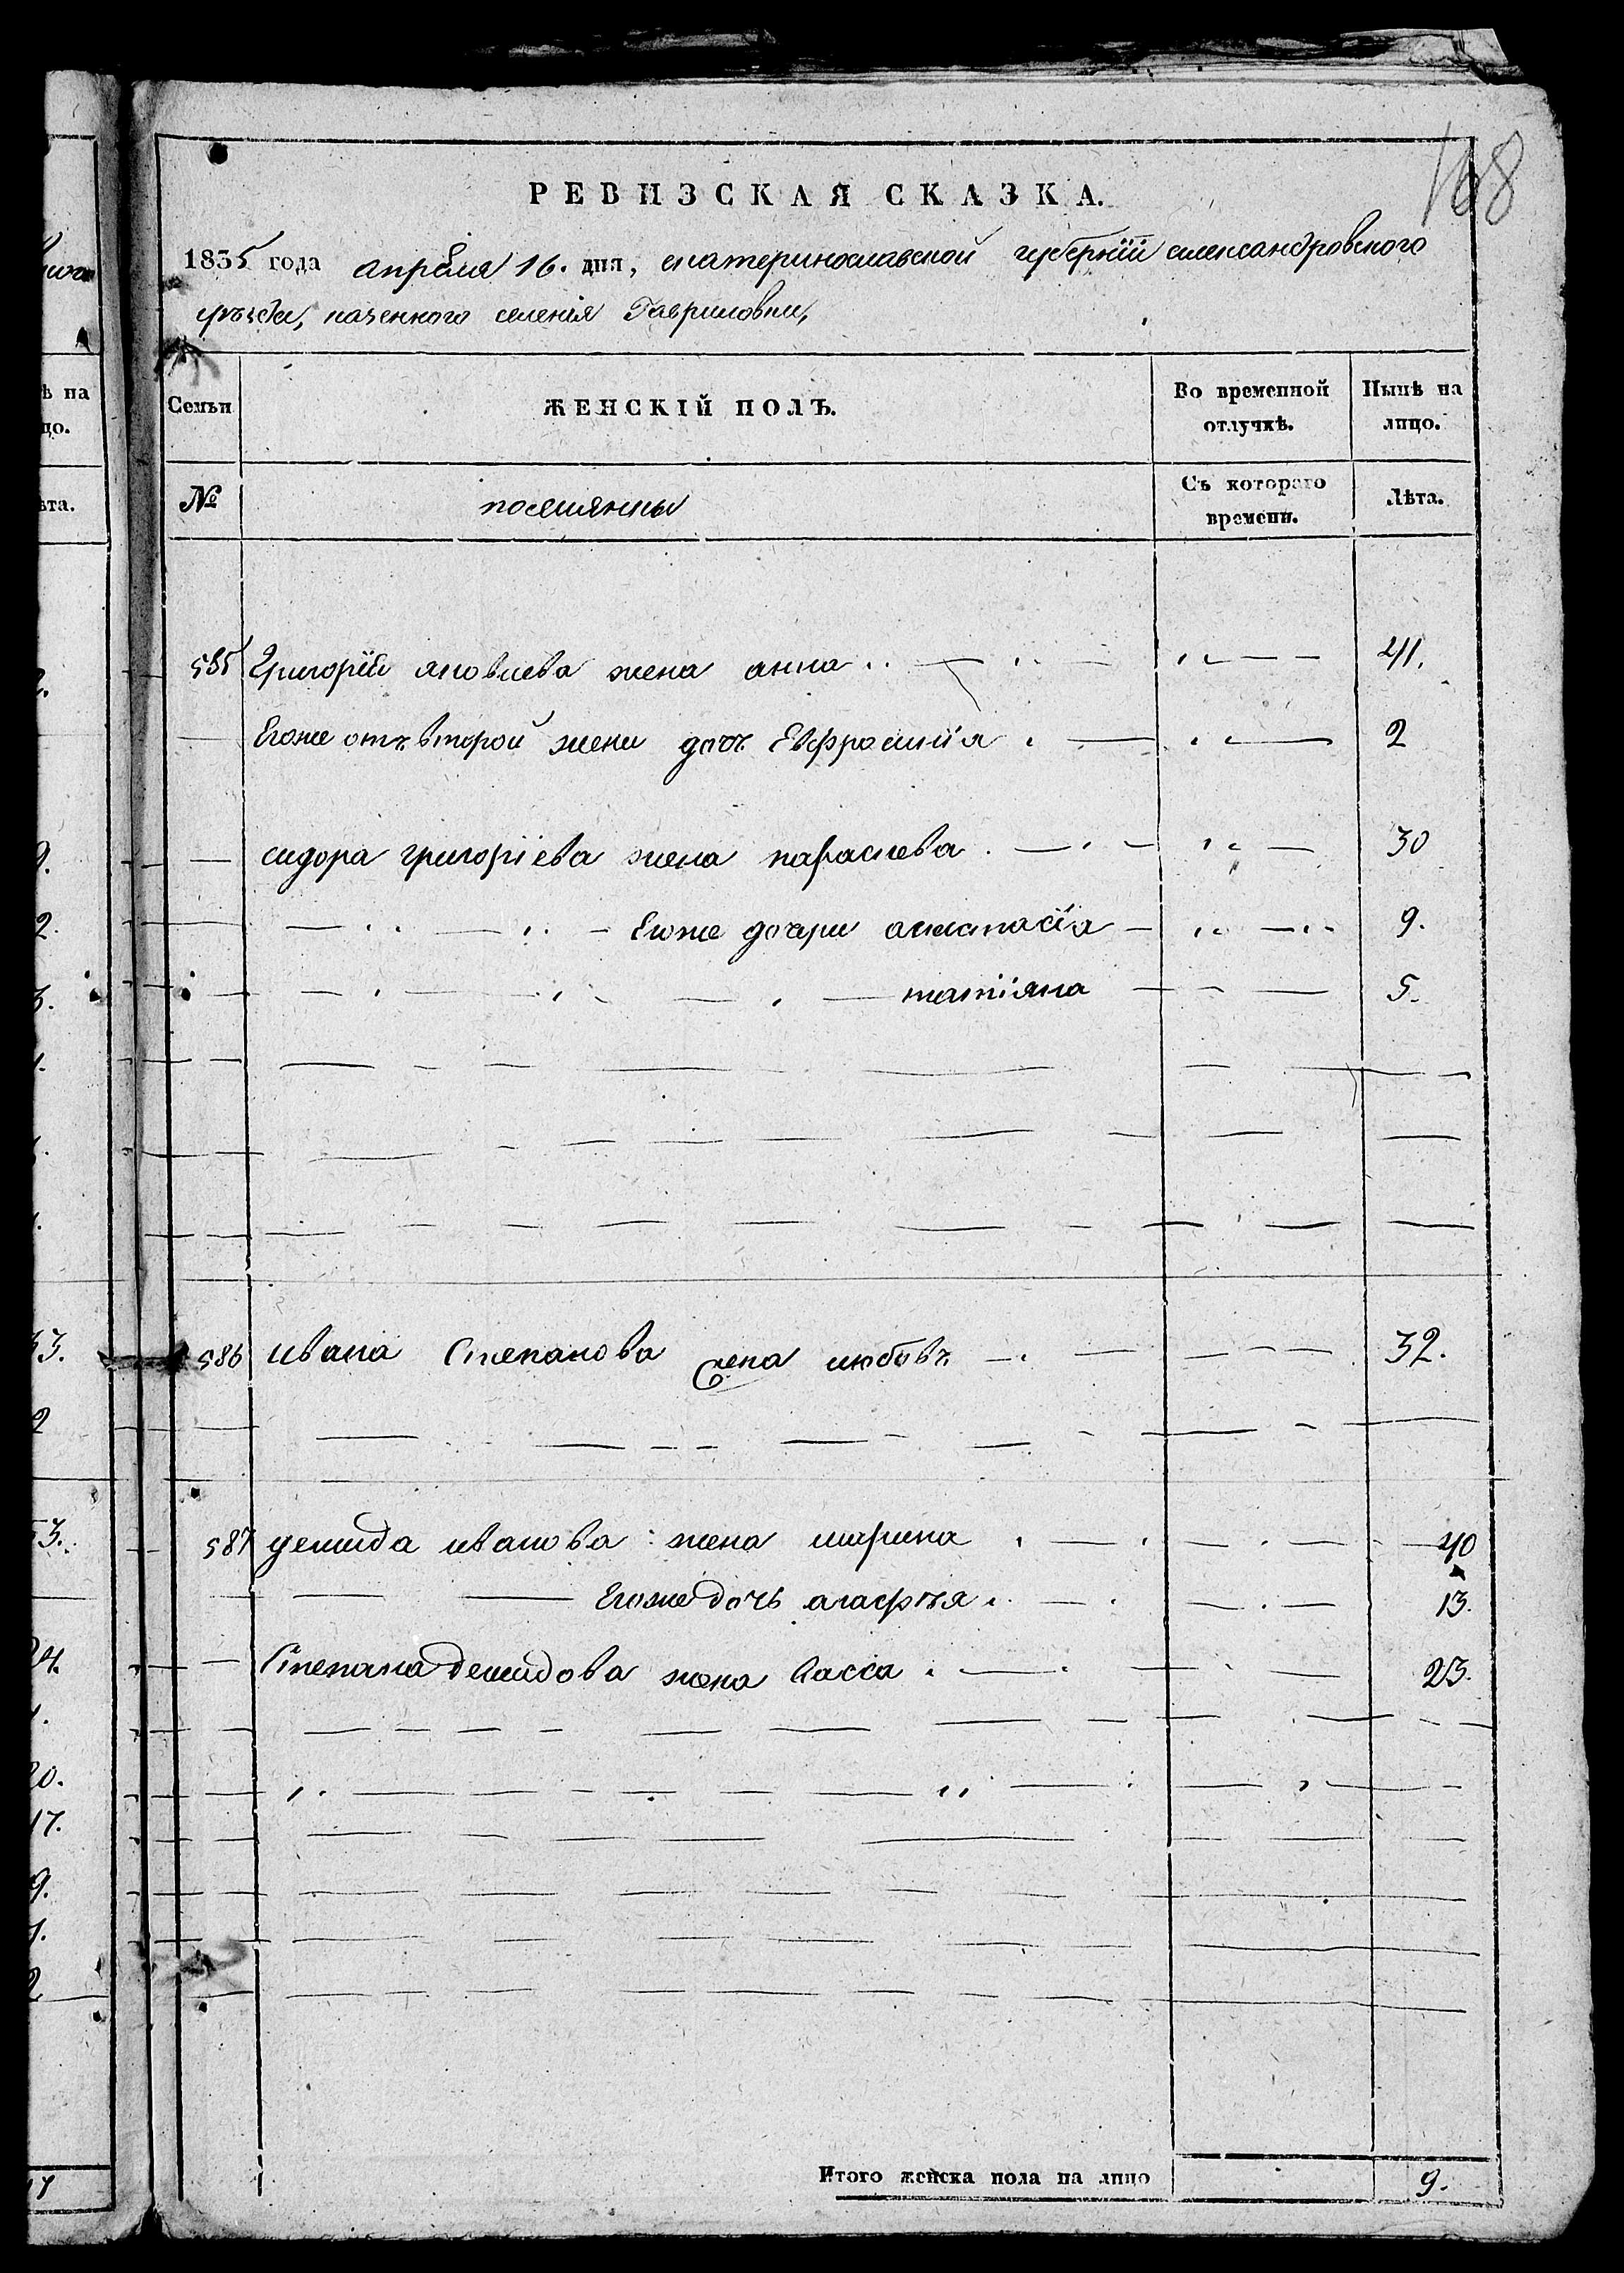 168
РЕВИЗСКАЯ СКАЗКА.
1835 года апреля 16. дня, екатеринославской губернїй александровского
уѣзда, казенного селенія Гавриловки,
Семьи
ЖЕНСКІЙ ПОЛЪ.
Во временной отлучкѣ.
Нынѣ на лицо.
№
поселянны
Съ котораго времени.
Лѣта.
585 Григорїй яковлева жена анна 41.
Егоже отъ второй жени дочь Ефросинія 2
сидора григоріева жена параскева 30
Егоже дочери анастасїя 9.
татіяна 5.
586 ивана Степанова жена любовъ 32.
587 демида иванова жена марина 40
Егоже дочь агафѣя 13.
Степана демидова жена васса 23.
Итого женска пола на лицо 9.
ѣ на
цо.
ѣта.